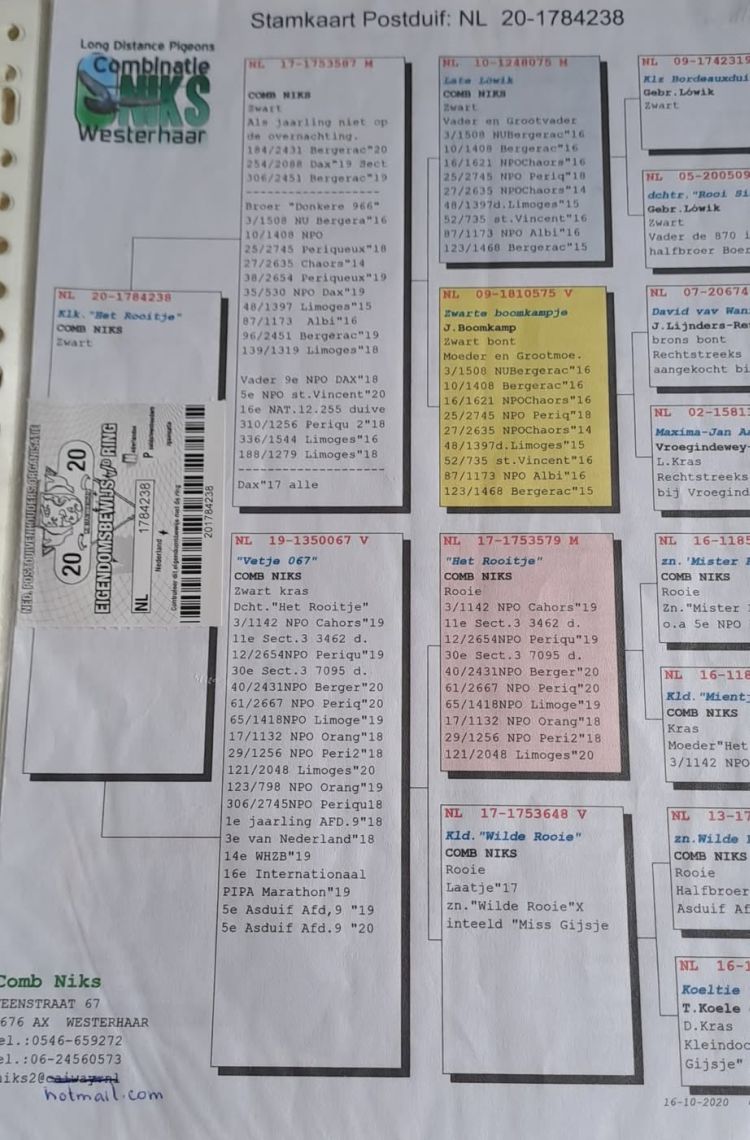 Stamkaart Postduif: NL 20-1784238
Long Distance Pigeons
Combinatie
NIKS
Westerhaar
NL 20-1784238
Klk."Het Rooitje"
COMB NIKS
Zwart
NED. POSTDUIVENHOUDERS ORGANISATIE
20
20
EIGENDOMSBEWIJS RING
NL
1784238
Nederland
P
201784238
NL 17-1753587 M
COMB NIKS
Zwart
Als jaarling niet op
de overnachting.
184/2431 Bergerac"20
254/2088 Dax"19 Sect
306/2451 Bergerac"19
-------------------
Broer "Donkere 966"
3/1508 NU Bergera"16
10/1408 NPO
25/2745 Periqueux"18
27/2635 Chaors"14
38/2654 Periqueux"19
35/530 NPO Dax"19
48/1397 Limoges"15
87/1173 Albi"16
96/2451 Bergerac"19
139/1319 Limoges"18
Vader 9e NPO DAX"18
5e NPO st.Vincent"20
16e NAT.12.255 duive
310/1256 Periqu 2"18
336/1544 Limoges"16
188/1279 Limoges"18
--------------------
Dax"17 alle
NL 19-1350067 V
"Vetje 067"
COMB NIKS
Zwart kras
Dcht."Het Rooitje"
3/1142 NPO Cahors"19
11e Sect.3 3462 d.
12/2654NPO Periqu"19
30e Sect.3 7095 d.
40/2431NPO Berger"20
61/2667 NPO Periq"20
65/1418NPO Limoge"19
17/1132 NPO Orang"18
29/1256 NPO Peri2"18
121/2048 Limoges"20
123/798 NPO Orang"19
306/2745NPO Periqu18
1e jaarling AFD.9"18
3e van Nederland"18
14e WHZB"19
16e Internationaal
PIPA Marathon"19
5e Asduif Afd,9 "19
5e Asduif Afd.9 "20
NL 10-1248075 M
Late Löwik
COMB NIKS
Zwart
Vader en Grootvader
3/1508 NUBergerac"16
10/1408 Bergerac"16
16/1621 NPOChaors"16
25/2745 NPO Periq"18
27/2635 NPOChaors"14
48/1397d.Limoges"15
52/735 st.Vincent"16
87/1173 NPO Albi"16
123/1468 Bergerac"15
NL 09-1810575 V
Zwarte boomkampje
J.Boomkamp
Zwart bont
Moeder en Grootmoe.
3/1508 NUBergerac"16
10/1408 Bergerac"16
16/1621 NPOChaors"16
25/2745 NPO Periq"18
27/2635 NPOChaors"14
48/1397d.Limoges"15
52/735 st.Vincent"16
87/1173 NPO Albi"16
123/1468 Bergerac"15
NL 17-1753579 M
"Het Rooitje"
COMB NIKS
Rooie
3/1142 NPO Cahors"19
11e Sect.3 3462 d.
12/2654NPO Periqu"19
30e Sect.3 7095 d.
40/2431NPO Berger"20
61/2667 NPO Periq"20
65/1418NPO Limoge"19
17/1132 NPO Orang"18
29/1256 NPO Peri2"18
121/2048 Limoges"20
NL 17-1753648 V
Kld."Wilde Rooie"
COMB NIKS
Rooie
Laatje"17
zn."Wilde Rooie"X
inteeld "Miss Gijsje
NL 09-1742319
Klz Bordeauxdui
Gebr.Löwik
Zwart
NL 05-200509
dchtr."Rooi Si
Gebr.Löwik
Zwart
Vader de 870 i
halfbroer Boer
NL 07-20674
David vav Wan
J.Lijnders-Re
brons bont
Rechtstreeks
aangekocht bi
NL 02-15811
Maxima-Jan A
Vroegindewey-
L.Kras
Rechtstreeks
bij Vroegind
NL 16-1185
zn.'Mister
Rooie
Zn."Mister
o.a 5e NPO
NL 16-118
Kld."Mientj
COMB NIKS
Kras
Moeder"Het
3/1142 NPO
NL 13-17
zn.Wilde
COMB NIKS
Rooie
Halfbroer
Asduif Af
NL 16-1
Koeltie
T.Koele
D.Kras
Kleindoc
Gijsje"
Comb Niks
EENSTRAAT 67
676 AX WESTERHAAR
el.:0546-659272
el.:06-24560573
niks2@caiwaynl
hotmail.com
16-10-2020